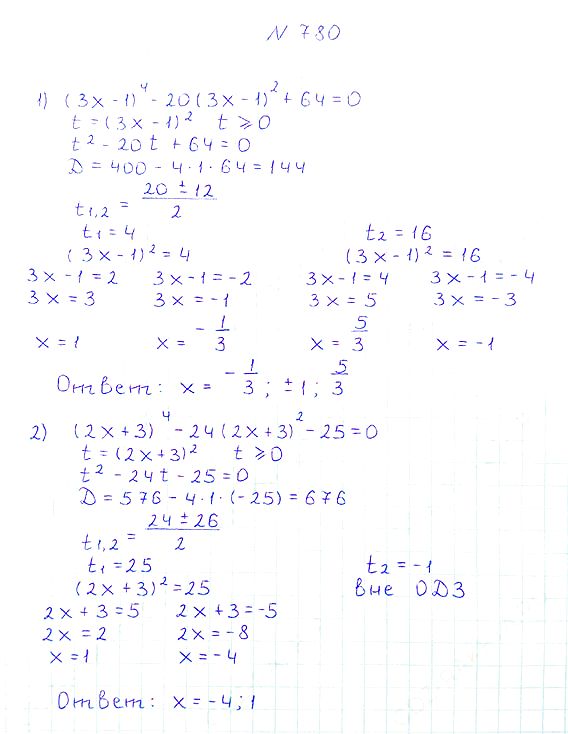 N 780
1) (3x - 1)⁴ - 20(3x - 1)² + 64 = 0
t = (3x - 1)² t ⩾ 0
t² - 20t + 64 = 0
D = 400 - 4·1·64 = 144
t₁,₂ = (20 ± 12)/2
t₁ = 4 t₂ = 16
(3x - 1)² = 4 (3x - 1)² = 16
3x - 1 = 2 3x - 1 = -2 3x - 1 = 4 3x - 1 = -4
3x = 3 3x = -1 3x = 5 3x = -3
x = 1 x = -1/3 x = 5/3 x = -1
Ответ: x = -1/3; ±1; 5/3
2) (2x + 3)⁴ - 24(2x + 3)² - 25 = 0
t = (2x + 3)² t ⩾ 0
t² - 24t - 25 = 0
D = 576 - 4·1·(-25) = 676
t₁,₂ = (24 ± 26)/2
t₁ = 25 t₂ = -1
(2x + 3)² = 25 вне ОДЗ
2x + 3 = 5 2x + 3 = -5
2x = 2 2x = -8
x = 1 x = -4
Ответ: x = -4; 1